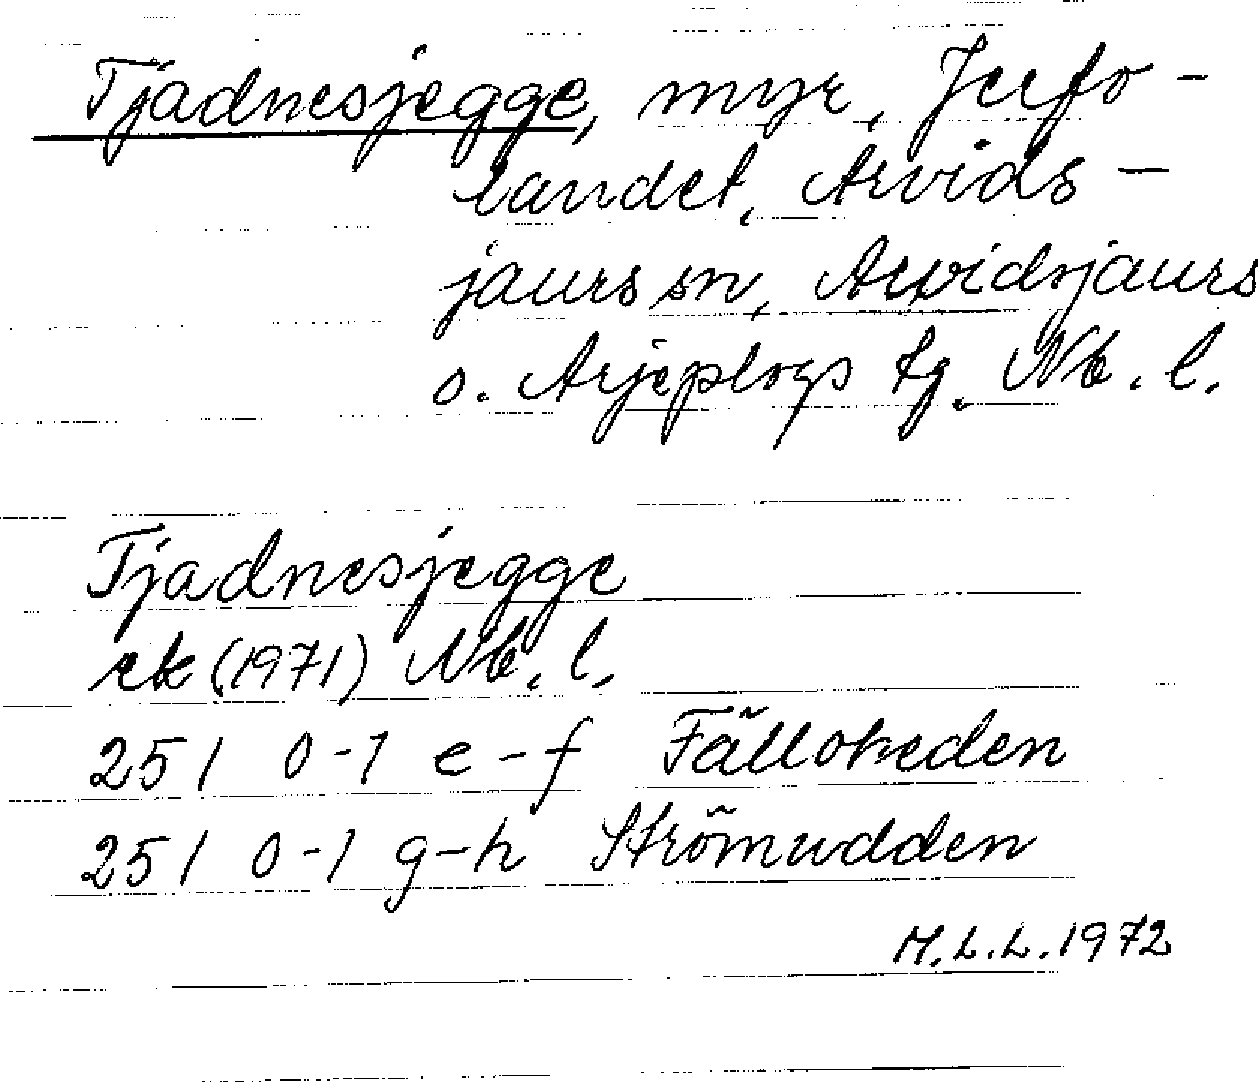 Tjadnesjegge, myr, Jerfo-
landet, Arvids-
jaurs sn, Arvidsjaurs
o. Arjeplogs tg. Nb. l.
Tjadnesjegge
ek (1971) Nb. l.
25 I 0-1 e-f Fälloheden
25 I 0-1 g-h Strömudden
M.L.L. 1972